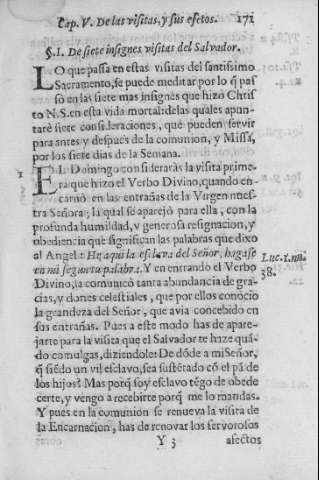 Cap. V. De las visitas, y sus efetos. 171
§. I. De siete insignes visitas del Salvador.
LO que passa en estas visitas del santissimo
Sacramento, se puede meditar por lo q̃ pas
só en las siete mas insignes que hizo Chris
to N.S. en esta vida mortal: de las quales apun-
tarè siete consideraciones, que pueden servir
para antes y despues de la comunion, y Missa,
por los siete dias de la Semana.
1 EL Domingo consideraràs la visita prime-
ra que hizo el Verbo Divino, quando en-
carnò en las entrañas de la Virgen nues-
tra Señora; la qual se aparejò para ella, con la
profunda humildad, y generosa resignacion, y
obediencia que significan las palabras que dixo
al Angel: He aqui la esclava del Señor, hagase
en mi segun tu palabra. Y en entrando el Verbo
Divino, la comunicò tanta abundancia de gra-
cias, y dones celestiales, que por ellos conociò
la grandeza del Señor, que avia concebido en
sus entrañas. Pues a este modo has de apare-
jarte para la visita que el Salvador te haze quã-
do comulgas, diziendole: De dõde a mi Señor,
q̃ siẽdo un vil esclavo, sea sustẽtado cõ el pã de
los hijos? Mas porq̃ soy esclavo tẽgo de obede-
certe, y vengo a recebirte porq̃ me lo mandas.
Y pues en la comunion se renueva la visita de
la Encarnacion, has de renovar los fervorosos
Y 3 afectos
Luc. 1. nu.
38.